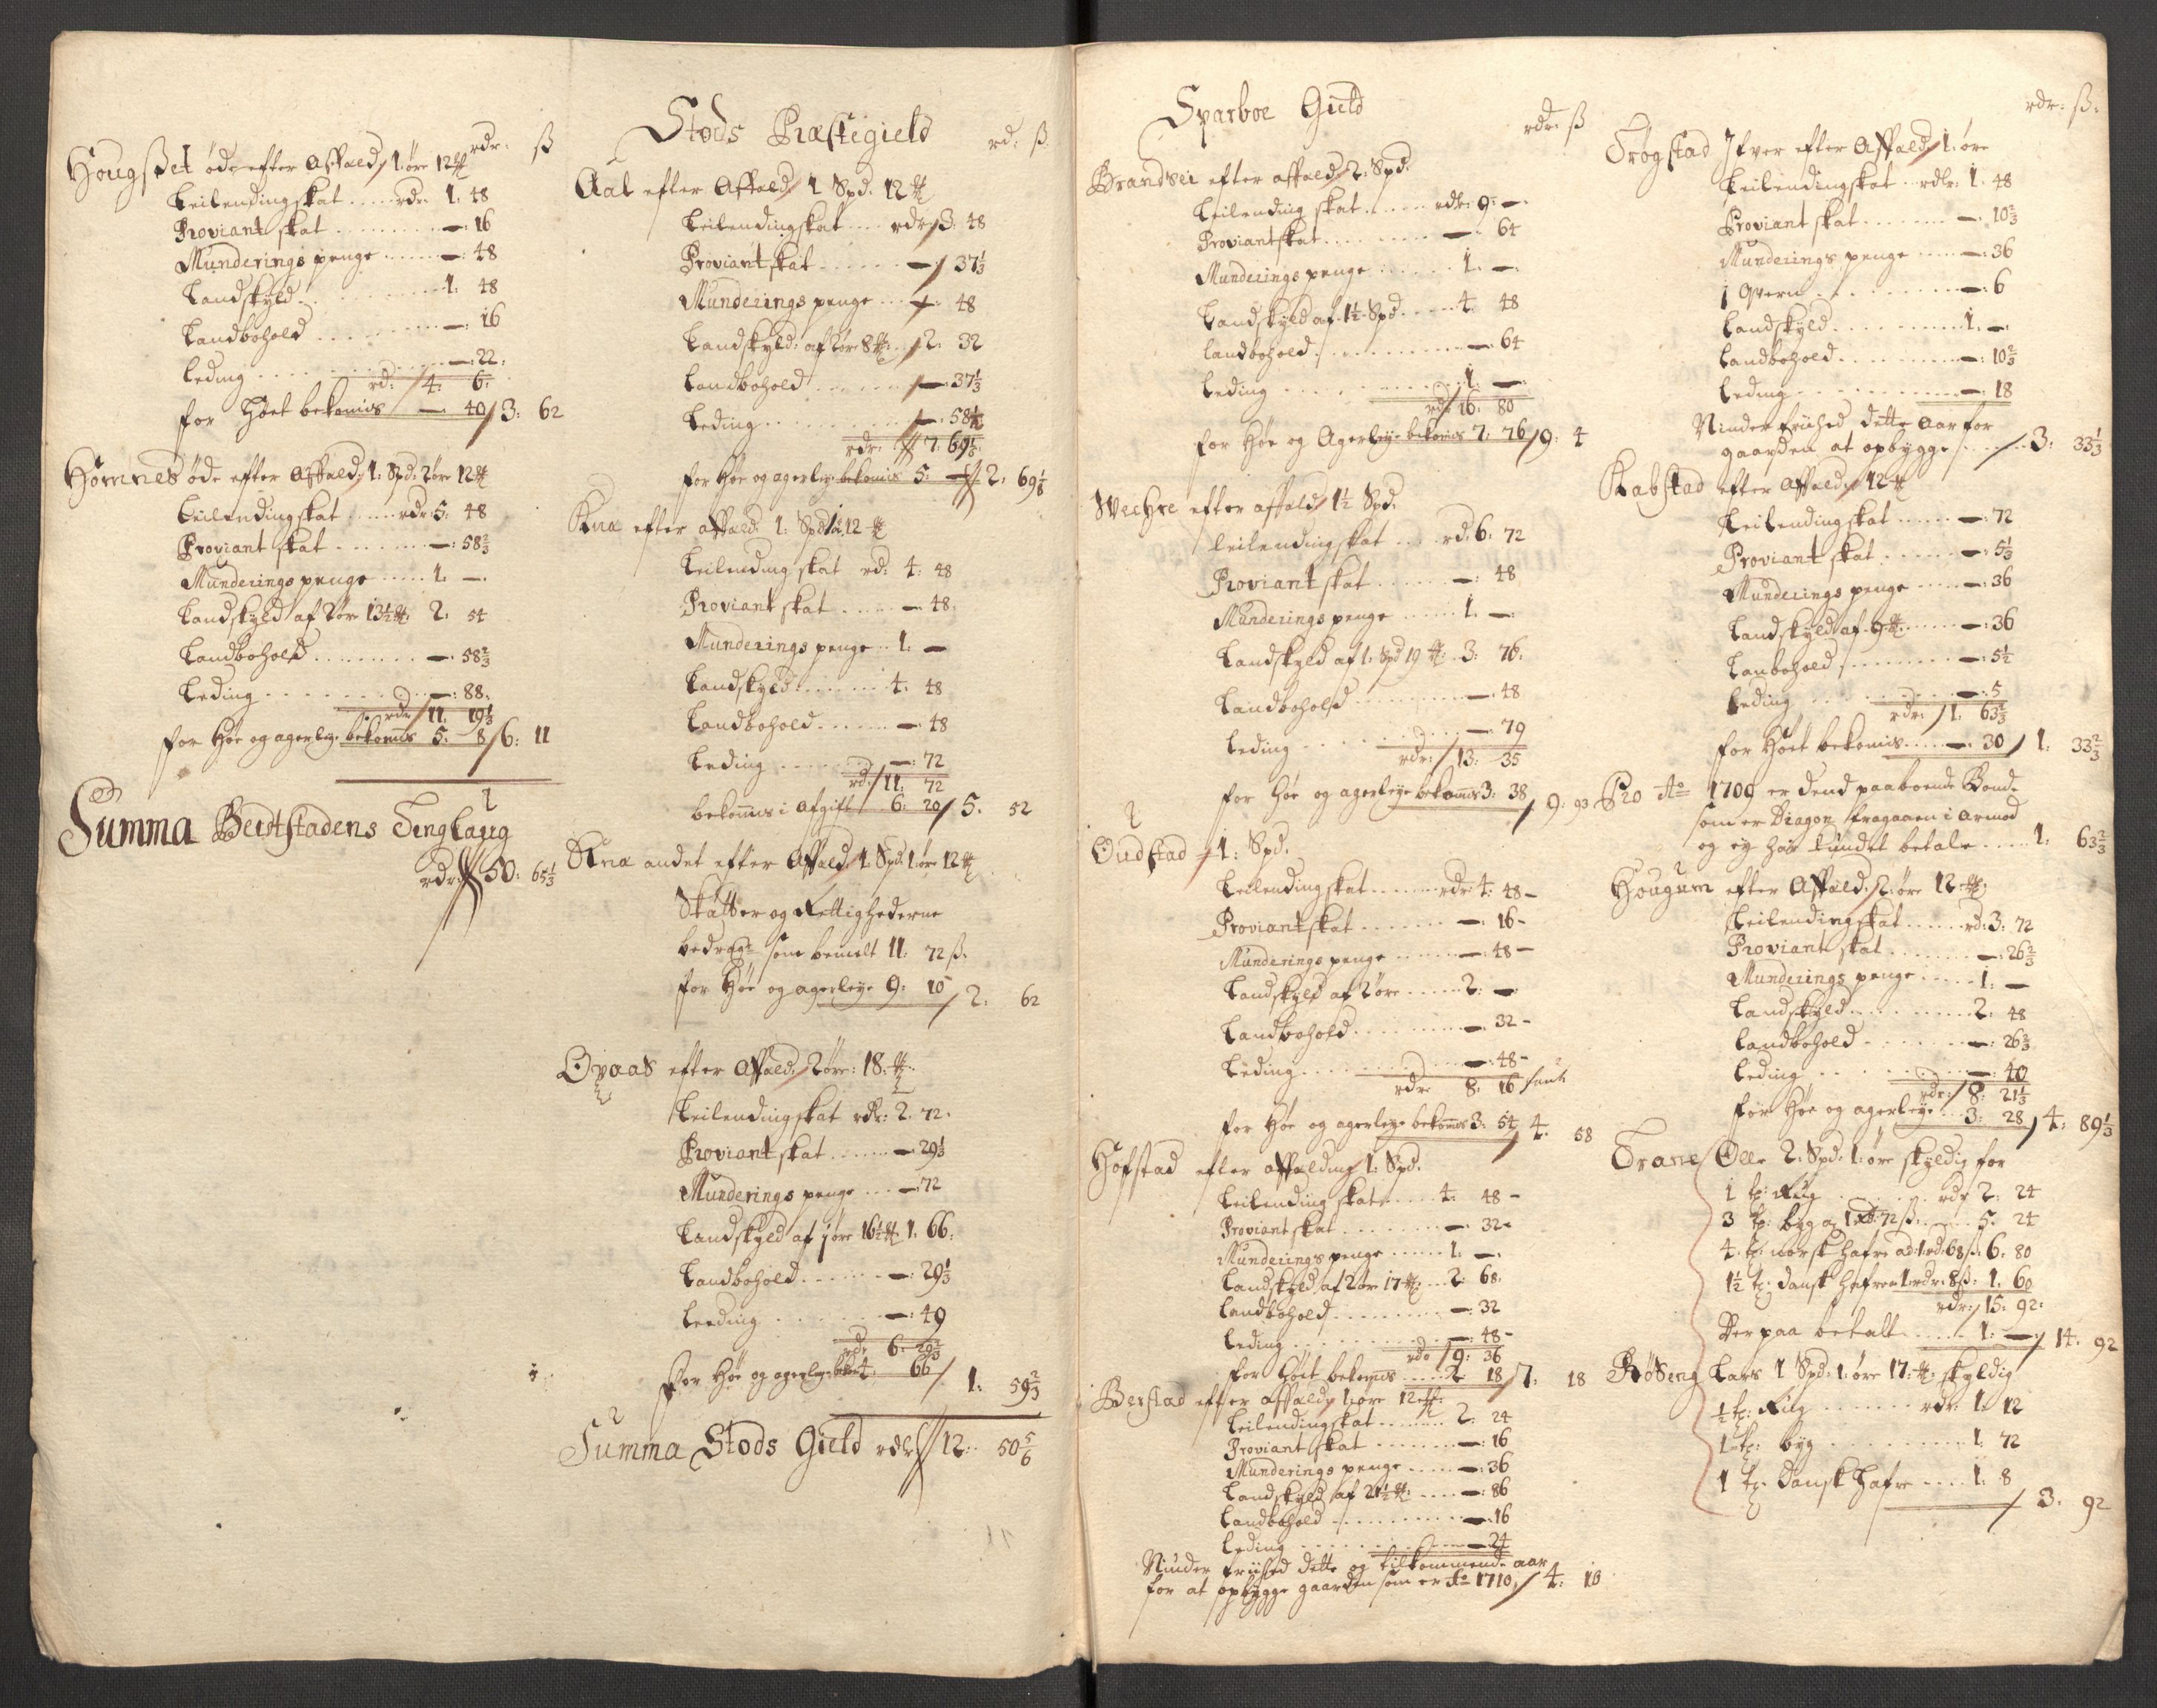 rdr: ß
Hougset öde efter Affald 1: öre 12 ℔
Leilendingskat ..... rdr. 1. 48
Proviant skat ........ —: 16
Munderings penge ..... —: 48
Landskyld ......... 1: 48
Landbohold ........ —: 16
Leding ........... —: 22:
rd: 4: 6:
for Höet bekomis —: 40 / 3: 62
Homnes öde efter Affald 1: Spd: 2 öre 12 ℔
Leilendingskat ..... rdr: 5: 48
Proviant skat ....... —: 58⅔
Munderings penge ..... 1. —.
Landskyld af 2 öre 13½ ℔: 2: 54
Landbohold ........ —. 58⅔
Leding ......... —: 88:
rdr 11. 19⅓
for Höe og agerleye bekomis 5. 8 / 6: 11
Summa Beidstadens Tinglaug
rdr: 50: 65⅓
Stods Præstegield
rd: ß
Aal efter Affald 1 Spd. 12 ℔
Leilendingskat ... rdr 3: 48
Proviant skat ...... —: 37⅓
Munderings penge ... —: 48
Landskyld: af 2 öre 8 ℔: 2: 32
Landbohold ...... —: 37⅓
Leding ........ —. 58
rdr: 7. 69⅓
for Höe og agerleye bekomis 5: — 2: 69⅓
Kna efter affald 1: Spd 12 ℔
Leilending skat rd: 4: 48
Proviant skat ..... —. 48.
Munderings penge .. 1: —
Landskyld ....... 4: 48
Landbohold ...... —: 48
Leding ........ —: 72
rd: 11: 72
bekomis i Afgift 6: 20 / 5. 52
Kna andet efter Affald 1 Spd. 1 öre 12 ℔
Skatter og Rettighederne
bedrager som bemelt 11. 72 ß.
for Höe og agerleye 9: 10 / 2. 62
Opaas efter Affald 2 öre: 18: ℔
Leilendingskat rdr: 2. 72.
Proviant skat ...... —. 29⅓
Munderings penge ... —: 72
Landskyld af 1 öre 16½ ℔ 1. 66:
Landbohold ...... —: 29⅓
Leeding ........ —: 49
rdr 6: 29⅔
for Höe og agerleye 4. 66 / 1. 59⅔
Summa Stods Gield rdr 12: 50⅚
Sparboe Gield
rdr: ß
Brandsei efter affald 2: Spd:
Leilending skat ..... rdr: 9: —.
Proviantskat ....... —: 64
Munderings penge ...... 1. —.
Landskyld af 1½ Spd ..... 4. 48
Landbohold ......... —: 64
Leding ........ 1. —:
rdr 16: 80
for Höe og Agerleye bekomis 7. 76 / 9: 4
Wechre efter affald 1½ Spd.
Leilendingskat ... rd: 6: 72
Proviant skat ...... —: 48
Munderings penge ..... 1. —:
Landskyld af 1. Spd 19 ℔: 3: 76.
Landbohold ........ —. 48
Leding ......... —. 79
rdr: 13: 35
for höe og agerleye bekomis 3: 38 / 9: 93
Oudstad 1: Spd.
Leilendingskat ...... rdr: 4: 48 —
Proviantskat ...... —. 16 —
Munderings penge ..... —. 48 —
Landskyld af 2 öre ..... 2: —:
Landbohold ....... —. 32 —
Leding ........ —: 48 —
rdr 8. 16
for Höe og agerleye bekomis 3: 54 / 4. 58
Hofstad efter affalding 1: Spd.
Leilending skat ..... 4: 48 —
Proviantskat ....... —. 32 —
Munderings penge ..... 1. —.
Landskyld af 2 öre 17 ℔: ... 2: 68.
Landbohold ....... —: 32
Leding ........ —: 48 —
rdr 9: 36
for höet bekomis .... 2 18 / 7: 18
Berstad efter affald 1 öre 12 ℔:
Leilendingskat ....... 2: 24
Proviant skat ...... —: 16
Munderings penge ..... —: 36
Landskyld af 21½ ℔: .... —: 86
Landbohold ......... —. 16
Leding ........ —. 24
Niuder friihed dette og tilkommende aar
for at opbygge gaarden som er Ao 1710, / 4: 10
rdr: ß:
Trøgstad Ifver efter Affald 1: öre
Leilendingskat ... rdr: 1. 48
Proviant skat ...... —. 10⅔
Munderings penge ..... —: 36
1 Qvern ......... —: 6
Landskyld ........ 1. —.
Landbohold ....... —: 10⅔
Leding ........ —: 18
Niuder friihed dette aar for
gaarden at opbygge ..... 3: 33⅓
Rabstad efter Affald 12 ℔
Leilendingskat ..... —: 72
Proviant skat ..... —: 5⅓
Munderings penge ..... —: 36
Landskyld af 9 ℔: .... —: 36
Lanbohold ........ —: 5½
Leding ........ —: 5
rdr: 1. 63⅓
for Höet bekomis ..... —. 30 / 1: 33⅔
Pro Ao 1709 er dend paaboende Bonde
som er Dragon fragaaen i armod
og ey har kundet betale .... 1: 63⅔
Hougum efter Affald 2: öre 12 ℔:
Leilendingskat ..... rd: 3: 72
Proviant skat ...... —: 26⅔
Munderings penge ..... 1: —
Landskyld ........ 2: 48
Landbohold ....... —: 26⅔
Leding ........ —: 40
rdr: 8: 21⅓
for Höe og agerleye .. 3: 28 / 4: 89⅓
Trane Olle 2: Spd: 1: öre skyldig for
1 tp: Rug ....... rdr 2: 24
3 tp: byg a 1 rd: 72 ß: .... 5. 24
4. tp: norsk hafre ad 1 rd: 68 ß: 6: 80
1½ tp: dansk hafre a 1 rdr: 8 ß: 1. 60
rdr: 15: 92:
Der paa betalt ..... 1: —: 14. 92
Røseng Lars 1 Spd: 1: öre 17: ℔: skyldig
½ tp: Rug ....... rdr: 1: 12
1 tp: byg ......... 1: 72
1 tp. Dansk hafre .... 1: 8
3. 92